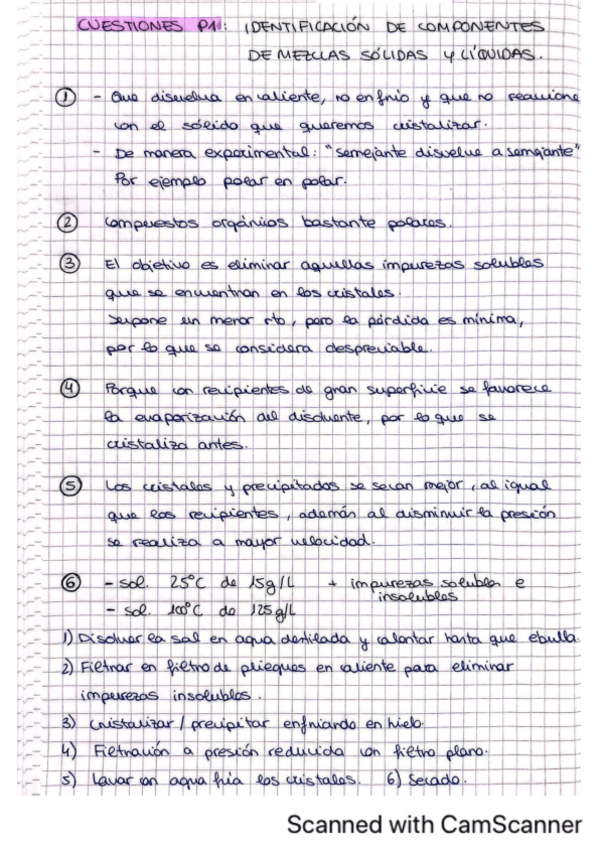 CUESTIONES P1: IDENTIFICACIÓN DE COMPONENTES
DE MEZCLAS SÓLIDAS Y LÍQUIDAS.
① - Que disuelva en caliente, no en frío y que no reaccione
con el sólido que queremos cristalizar.
- De manera experimental: "semejante disuelve a semejante"
Por ejemplo polar en polar.
② Compuestos orgánicos bastante polares.
③ El objetivo es eliminar aquellas impurezas solubles
que se encuentran en los cristales.
Supone un menor rto, pero la pérdida es mínima,
por lo que se considera despreciable.
④ Porque con recipientes de gran superficie se favorece
la evaporización del disolvente, por lo que se
cristaliza antes.
⑤ Los cristales y precipitados se secan mejor, al igual
que los recipientes, además al disminuir la presión
se realiza a mayor velocidad.
⑥ - sol. 25°C de 15g/L + impurezas solubles e
insolubles
- sol. 100°C de 125g/L
1) Disolver la sal en agua destilada y calentar hasta que ebulla.
2) Filtrar en filtro de pliegues en caliente para eliminar
impurezas insolubles.
3) Cristalizar / precipitar enfriando en hielo.
4) Filtración a presión reducida con filtro plano.
5) Lavar con agua fría los cristales. 6) Secado.
Scanned with CamScanner